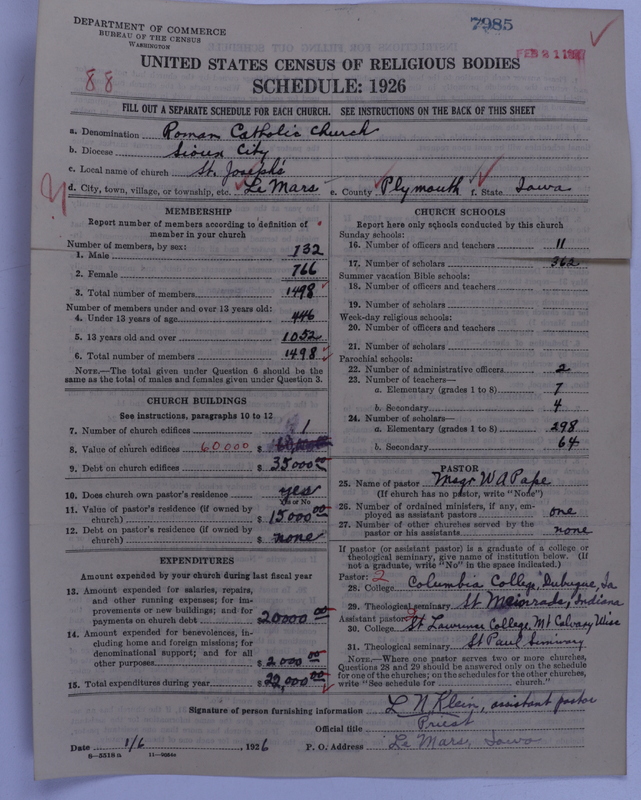 DEPARTMENT OF COMMERCE
BUREAU OF THE CENSUS
WASHINGTON
7985
FEB 21 1927
88
UNITED STATES CENSUS OF RELIGIOUS BODIES
SCHEDULE: 1926
FILL OUT A SEPARATE SCHEDULE FOR EACH CHURCH. SEE INSTRUCTIONS ON THE BACK OF THIS SHEET
a. Denomination Roman Catholic Church
b. Diocese Sioux City
c. Local name of church St. Joseph's
d. City, town, village, or township, etc. Le Mars e. County Plymouth f. State Iowa
MEMBERSHIP
Report number of members according to definition of
member in your church
Number of members, by sex:
1. Male 732
2. Female 766
3. Total number of members 1498
Number of members under and over 13 years old:
4. Under 13 years of age 446
5. 13 years old and over 1052
6. Total number of members 1498
NOTE.—The total given under Question 6 should be
the same as the total of males and females given under Question 3.
CHURCH BUILDINGS
See instructions, paragraphs 10 to 12
7. Number of church edifices 1
8. Value of church edifices 60000 $
9. Debt on church edifices $ 35000 00
10. Does church own pastor's residence yes
Yes or No
11. Value of pastor's residence (if owned by
church) $ 15000 00
12. Debt on pastor's residence (if owned by
church) $ none
EXPENDITURES
Amount expended by your church during last fiscal year
13. Amount expended for salaries, repairs,
and other running expenses; for im-
provements or new buildings; and for
payments on church debt $ 20000 00
14. Amount expended for benevolences, in-
cluding home and foreign missions; for
denominational support; and for all
other purposes $ 2000 00
15. Total expenditures during year $ 22,000 00
CHURCH SCHOOLS
Report here only schools conducted by this church
Sunday schools:
16. Number of officers and teachers 11
17. Number of scholars 362
Summer vacation Bible schools:
18. Number of officers and teachers
19. Number of scholars
Week-day religious schools:
20. Number of officers and teachers
21. Number of scholars
Parochial schools:
22. Number of administrative officers 2
23. Number of teachers—
a. Elementary (grades 1 to 8) 7
b. Secondary 4
24. Number of scholars—
a. Elementary (grades 1 to 8) 298
b. Secondary 64
PASTOR
25. Name of pastor Msgr W A Pape
(If church has no pastor, write "None")
26. Number of ordained ministers, if any, em-
ployed as assistant pastors one
27. Number of other churches served by the
pastor or his assistants none
If pastor (or assistant pastor) is a graduate of a college or
theological seminary, give name of institution below. (If
not a graduate, write "No" in the space indicated.)
Pastor: 2
28. College Columbia College, Dubuque, Ia
29. Theological seminary St Meinrads, Indiana
Assistant pastor:
30. College St Lawrence College, Mt Calvary Wisc
31. Theological seminary St Paul Seminary
NOTE.—Where one pastor serves two or more churches,
Questions 28 and 29 should be answered only on the schedule
for one of the churches; on the schedules for the other churches,
write "See schedule for church."
Signature of person furnishing information L. N. Klein, assistant pastor
Official title Priest
Date 1/6, 1926 P. O. Address Le Mars, Iowa